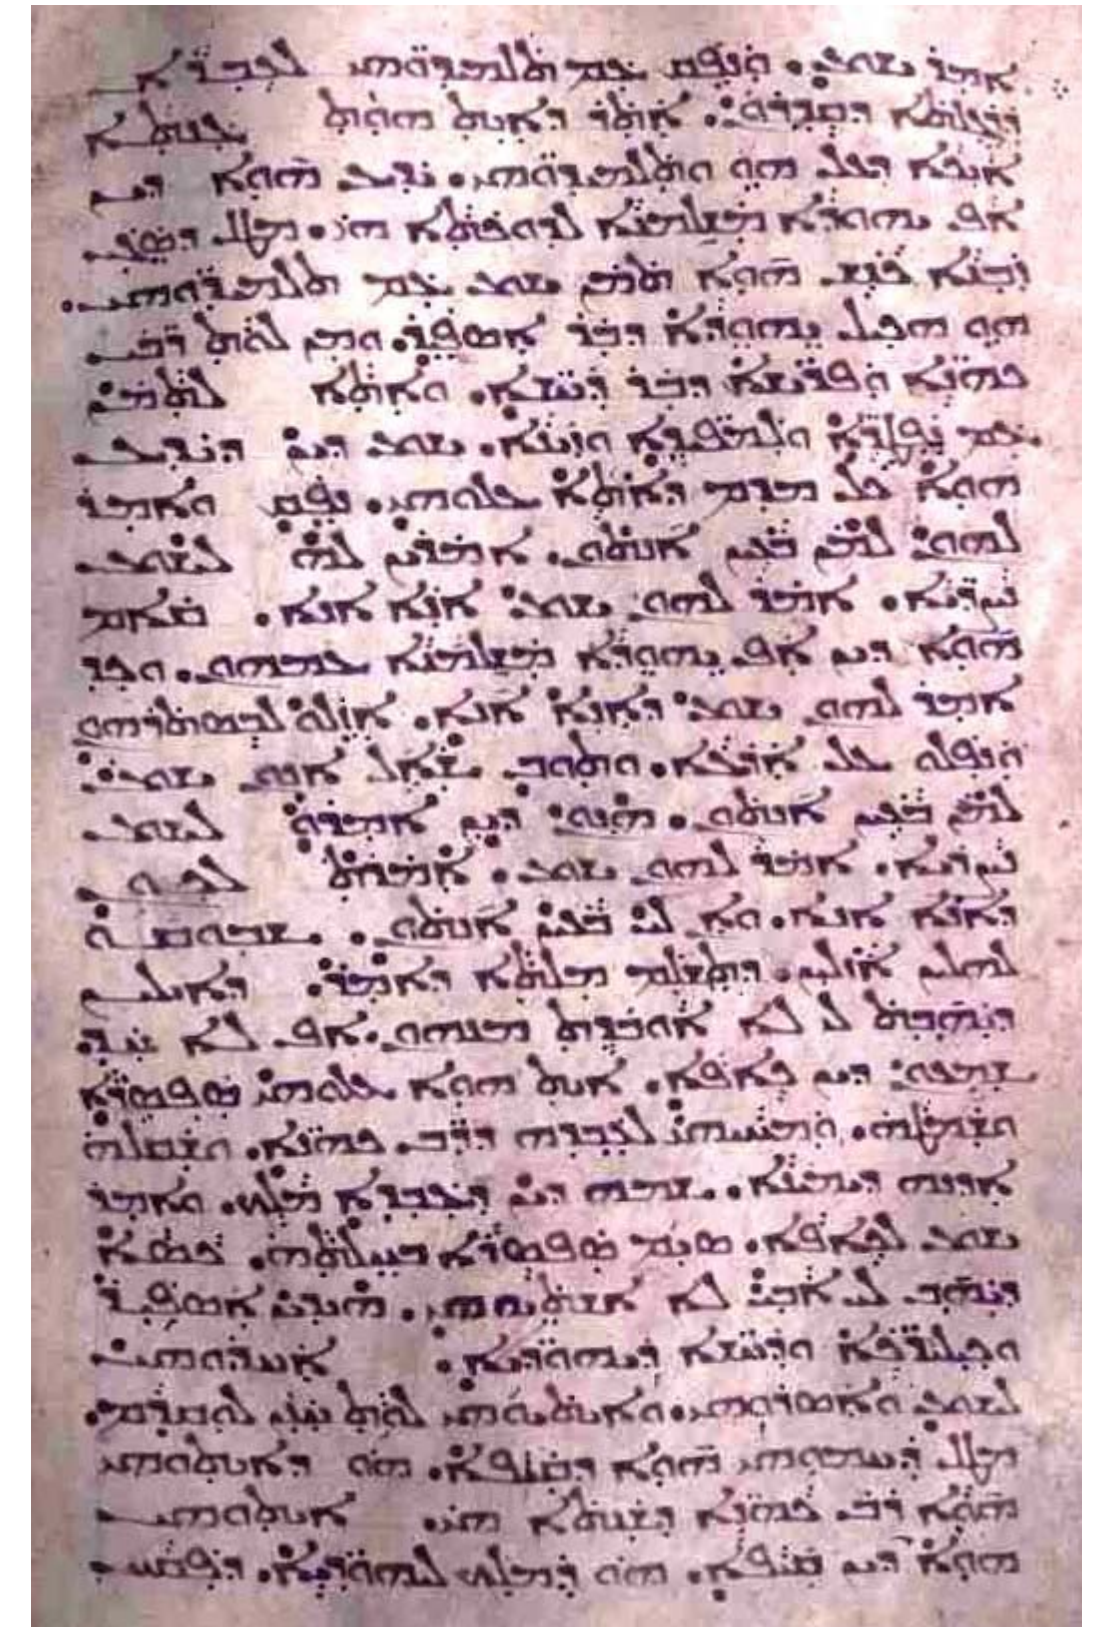 ܐܡܪ ܝܫܘܥ. ܘܢܦܩ ܥܡ ܬܠܡܝܕܘܗܝ ܠܥܒܪܐ
ܕܪܓܠܬܐ ܕܩܕܪܘܢ. ܐܬܪ ܕܐܝܬ ܗܘܬ ܓܢܬܐ
ܐܝܟܐ ܕܥܠ ܗܘ ܘܬܠܡܝܕܘܗܝ. ܝܕܥ ܗܘܐ ܕܝܢ
ܐܦ ܝܗܘܕܐ ܡܫܠܡܢܐ ܠܕܘܟܬܐ ܗܝ. ܡܛܠ ܕܣܓܝ
ܙܒܢܐ ܟܢܫ ܗܘܐ ܬܡܢ ܝܫܘܥ ܥܡ ܬܠܡܝܕܘܗܝ.
ܗܘ ܗܟܝܠ ܝܗܘܕܐ ܕܒܪ ܐܣܦܝܪ. ܘܡܢ ܠܘܬ ܪܒܝ
ܟܗܢܐ ܘܦܪܝܫܐ ܕܒܪ ܕܚܫܐ. ܘܐܬܐ ܠܬܡܢ
ܥܡ ܢܦܛܪܐ ܘܠܡܦܝܕܐ ܘܙܝܢܐ. ܝܫܘܥ ܕܝܢ ܕܝܕܥ
ܗܘܐ ܟܠ ܡܕܡ ܕܐܬܐ ܥܠܘܗܝ. ܢܦܩ ܘܐܡܪ
ܠܗܘܢ ܠܡܢ ܒܥܝܢ ܐܢܬܘܢ. ܐܡܪܝܢ ܠܗ ܠܝܫܘܥ
ܢܨܪܝܐ. ܐܡܪ ܠܗܘܢ ܝܫܘܥ ܐܢܐ ܐܢܐ. ܩܐܡ
ܗܘܐ ܕܝܢ ܐܦ ܝܗܘܕܐ ܡܫܠܡܢܐ ܥܡܗܘܢ. ܘܟܕ
ܐܡܪ ܠܗܘܢ ܝܫܘܥ ܕܐܢܐ ܐܢܐ. ܐܙܠܘ ܠܒܣܬܪܗܘܢ
ܘܢܦܠܘ ܥܠ ܐܪܥܐ. ܘܬܘܒ ܫܐܠ ܐܢܘܢ ܝܫܘܥ
ܠܡܢ ܒܥܝܢ ܐܢܬܘܢ. ܗܢܘܢ ܕܝܢ ܐܡܪܘ ܠܝܫܘܥ
ܢܨܪܝܐ. ܐܡܪ ܠܗܘܢ ܝܫܘܥ. ܐܡܪܬ ܠܟܘܢ
ܕܐܢܐ ܐܢܐ. ܘܐܢ ܠܝ ܒܥܝܢ ܐܢܬܘܢ. ܫܒܘܩܘ
ܠܗܠܝܢ ܐܙܠܝܢ. ܕܬܫܠܡ ܡܠܬܐ ܕܐܡܪ. ܕܐܝܠܝܢ
ܕܝܗܒܬ ܠܝ ܠܐ ܐܘܒܕܬ ܡܢܗܘܢ. ܐܦ ܠܐ ܚܕ.
ܫܡܥܘܢ ܕܝܢ ܟܐܦܐ. ܐܝܬ ܗܘܐ ܥܠܘܗܝ ܣܦܣܪܐ
ܘܫܡܛܗ. ܘܡܚܝܗܝ ܠܥܒܕܗ ܕܪܒ ܟܗܢܐ. ܘܫܩܠܗ
ܐܕܢܗ ܕܝܡܝܢܐ. ܫܡܗ ܕܝܢ ܕܥܒܕܐ ܡܠܟ. ܘܐܡܪ
ܝܫܘܥ ܠܟܐܦܐ. ܣܝܡ ܣܦܣܪܐ ܒܚܠܬܗ. ܟܣܐ
ܕܝܗܒ ܠܝ ܐܒܝ ܠܐ ܐܫܬܝܘܗܝ. ܗܝܕܝܢ ܐܣܦܝܪ
ܘܟܠܝܪܟܐ ܘܕܚܫܐ ܕܝܗܘܕܝܐ. ܐܚܕܘܗܝ
ܠܝܫܘܥ ܘܐܣܪܘܗܝ. ܘܐܝܬܝܘܗܝ ܠܘܬ ܚܢܢ ܠܘܩܕܡ.
ܡܛܠ ܕܚܡܘܗܝ ܗܘܐ ܕܩܝܦܐ. ܗܘ ܕܐܝܬܘܗܝ
ܗܘܐ ܪܒ ܟܗܢܐ ܕܫܢܬܐ ܗܝ. ܐܝܬܘܗܝ
ܗܘܐ ܕܝܢ ܩܝܦܐ. ܗܘ ܕܡܠܟ ܠܝܗܘܕܝܐ. ܕܦܩܚ